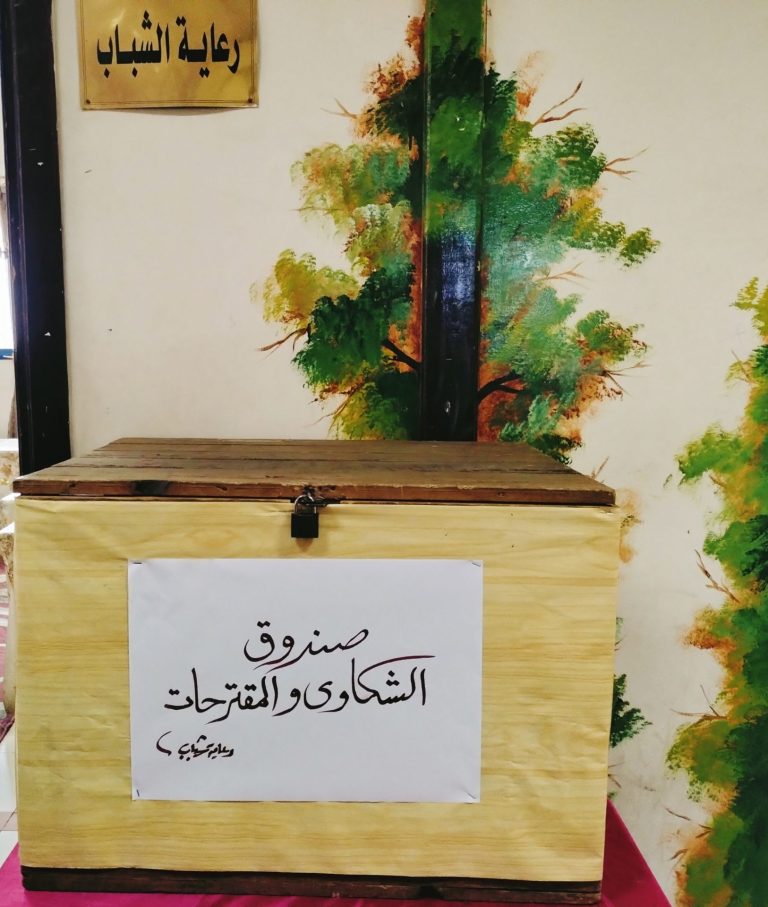 رعاية الشباب
صندوق
الشكاوى والمقترحات
رعاية شباب